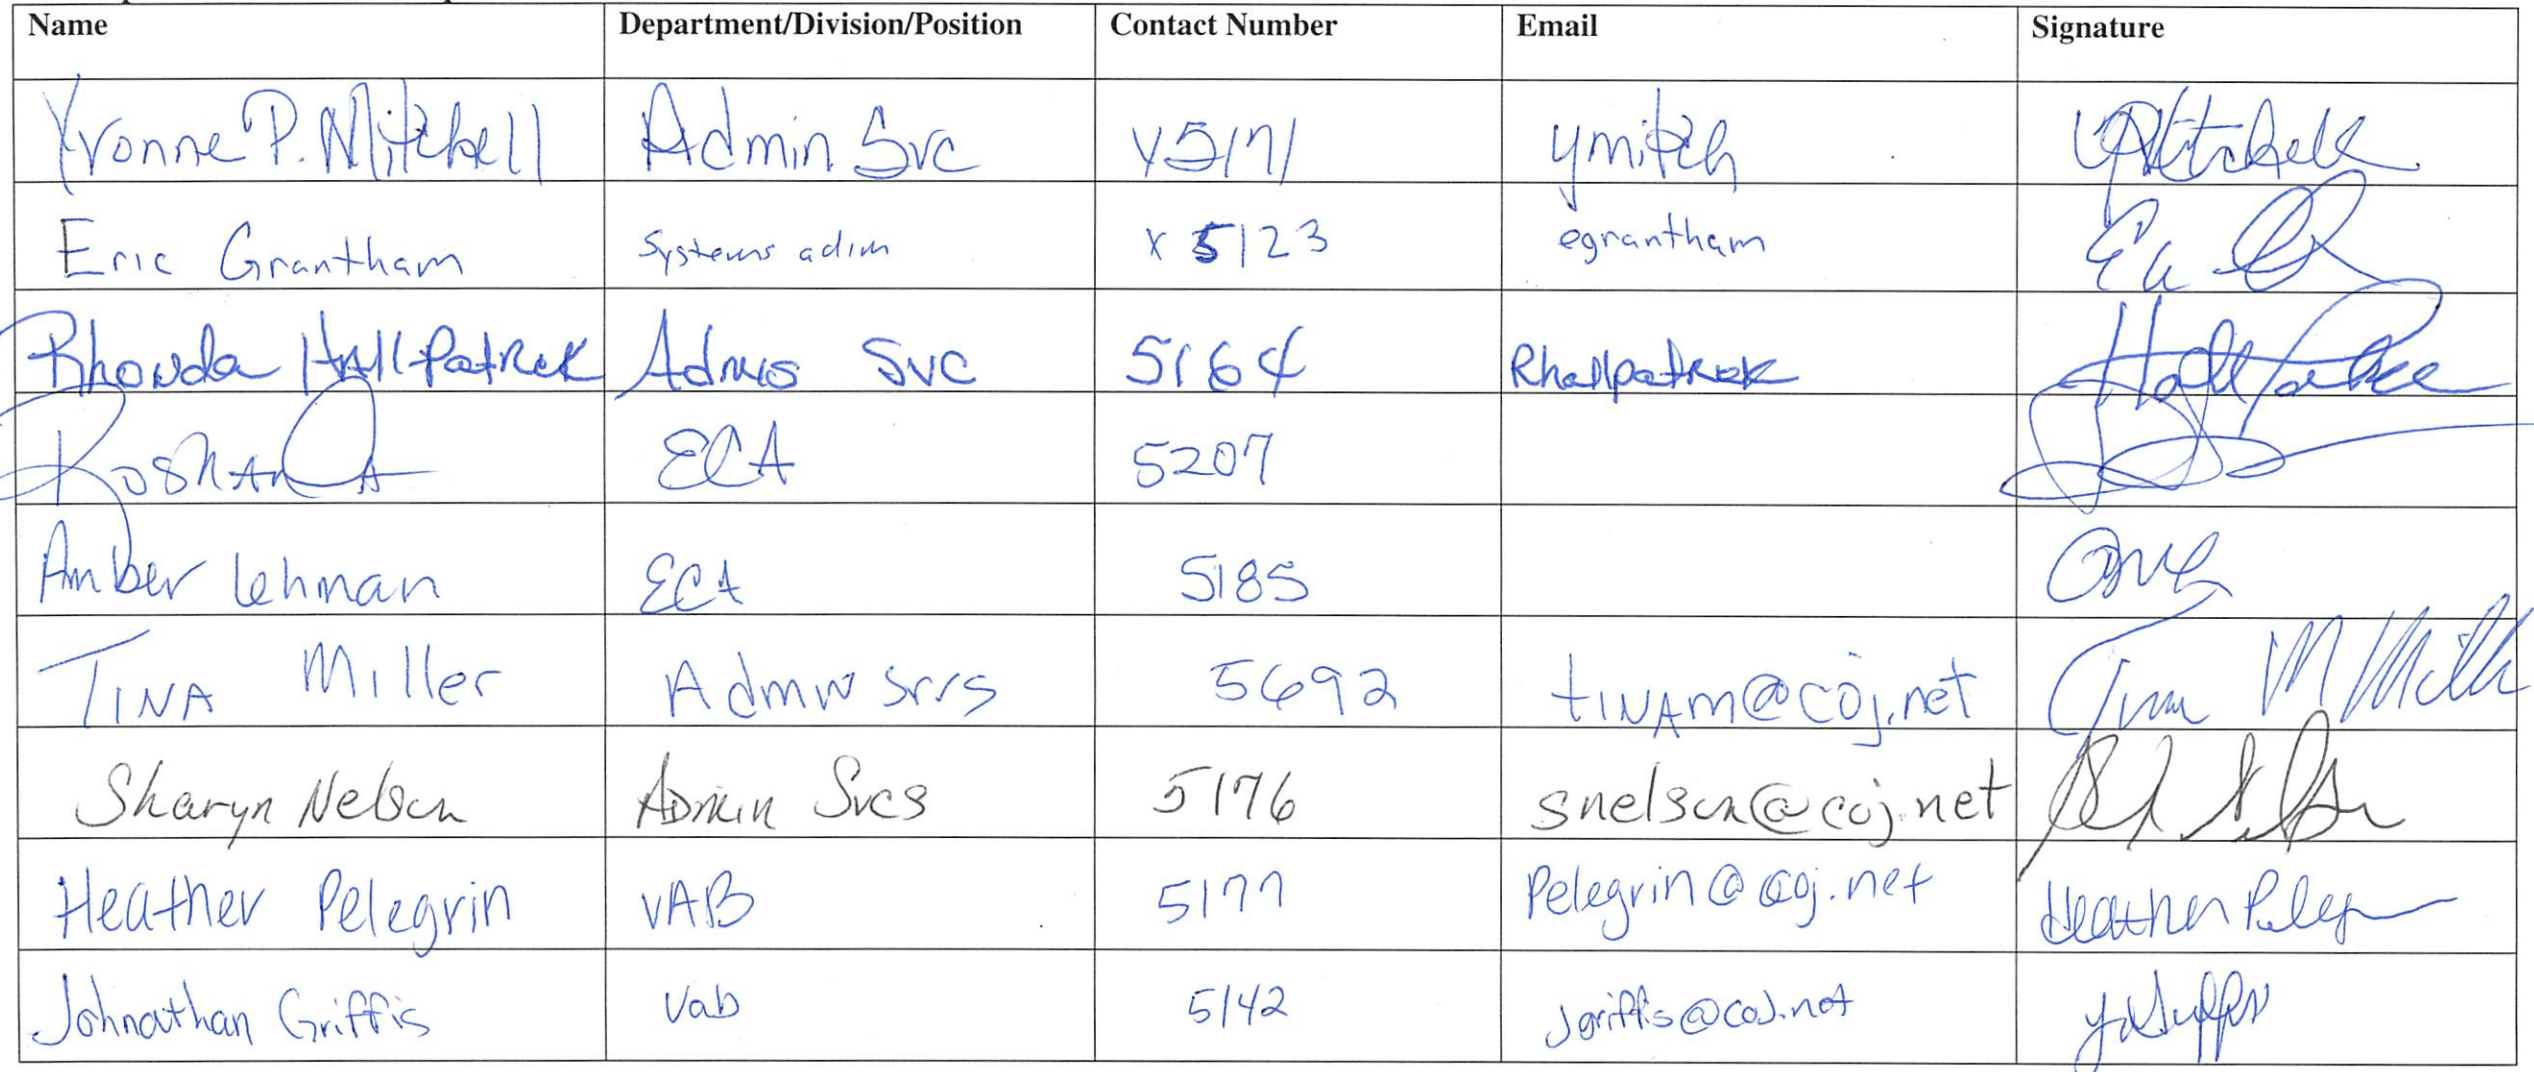 Name Department/Division/Position Contact Number Email Signature
Yvonne P. Mitchell Admin Svc x5171 ymitch
Eric Grantham Systems adim x 5123 egrantham
Rhonda Hall Patrick Admin Svc 5164 Rhallpatrick
Roshanda ECA 5207
Amber Lehman ECA 5185
TINA Miller Admin Srvs 5692 tINAm@coj.net Tina M Mill
Sharyn Nelson Admin Svcs 5176 snelson@coj.net
Heather Pelegrin VAB 5177 Pelegrin@coj.net Heather Peleg
Johnathan Griffis Vab 5142 jgriffis@coj.net